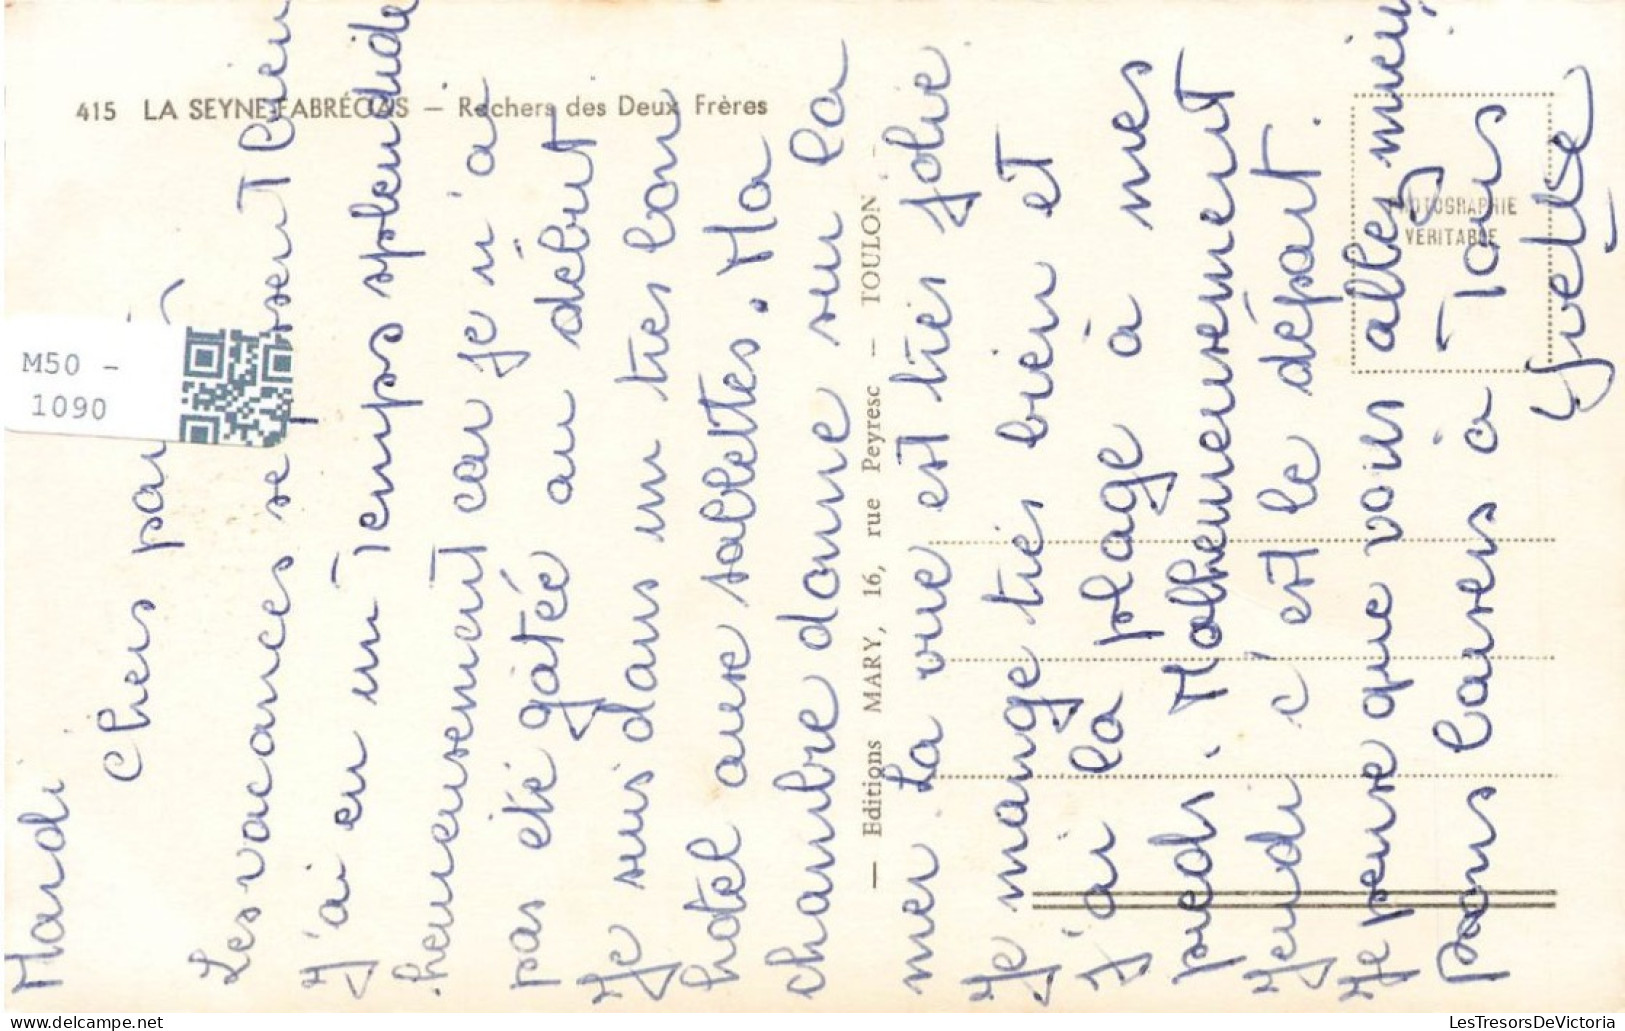 415 LA SEYNE-FABRÉGAS — Rochers des Deux Frères
M50 -
1090
— Editions MARY, 16, rue Peyresc — TOULON —
PHOTOGRAPHIE
VÉRITABLE
Mardi
Chers
Les vacances se bien
J'ai eu un temps splendide
heureusement car je n'ai
pas été gâtée au début
Je suis dans un très bon
hotel aux sablettes. Ma
chambre donne sur la
mer. La vue est très jolie
Je mange très bien et
j'ai la plage à mes
pieds. Malheureusement
Jeudi c'est le départ.
Je pense que vous allez mieux
Bons baisers à Tous
Yvette
LesTresorsDeVictoria